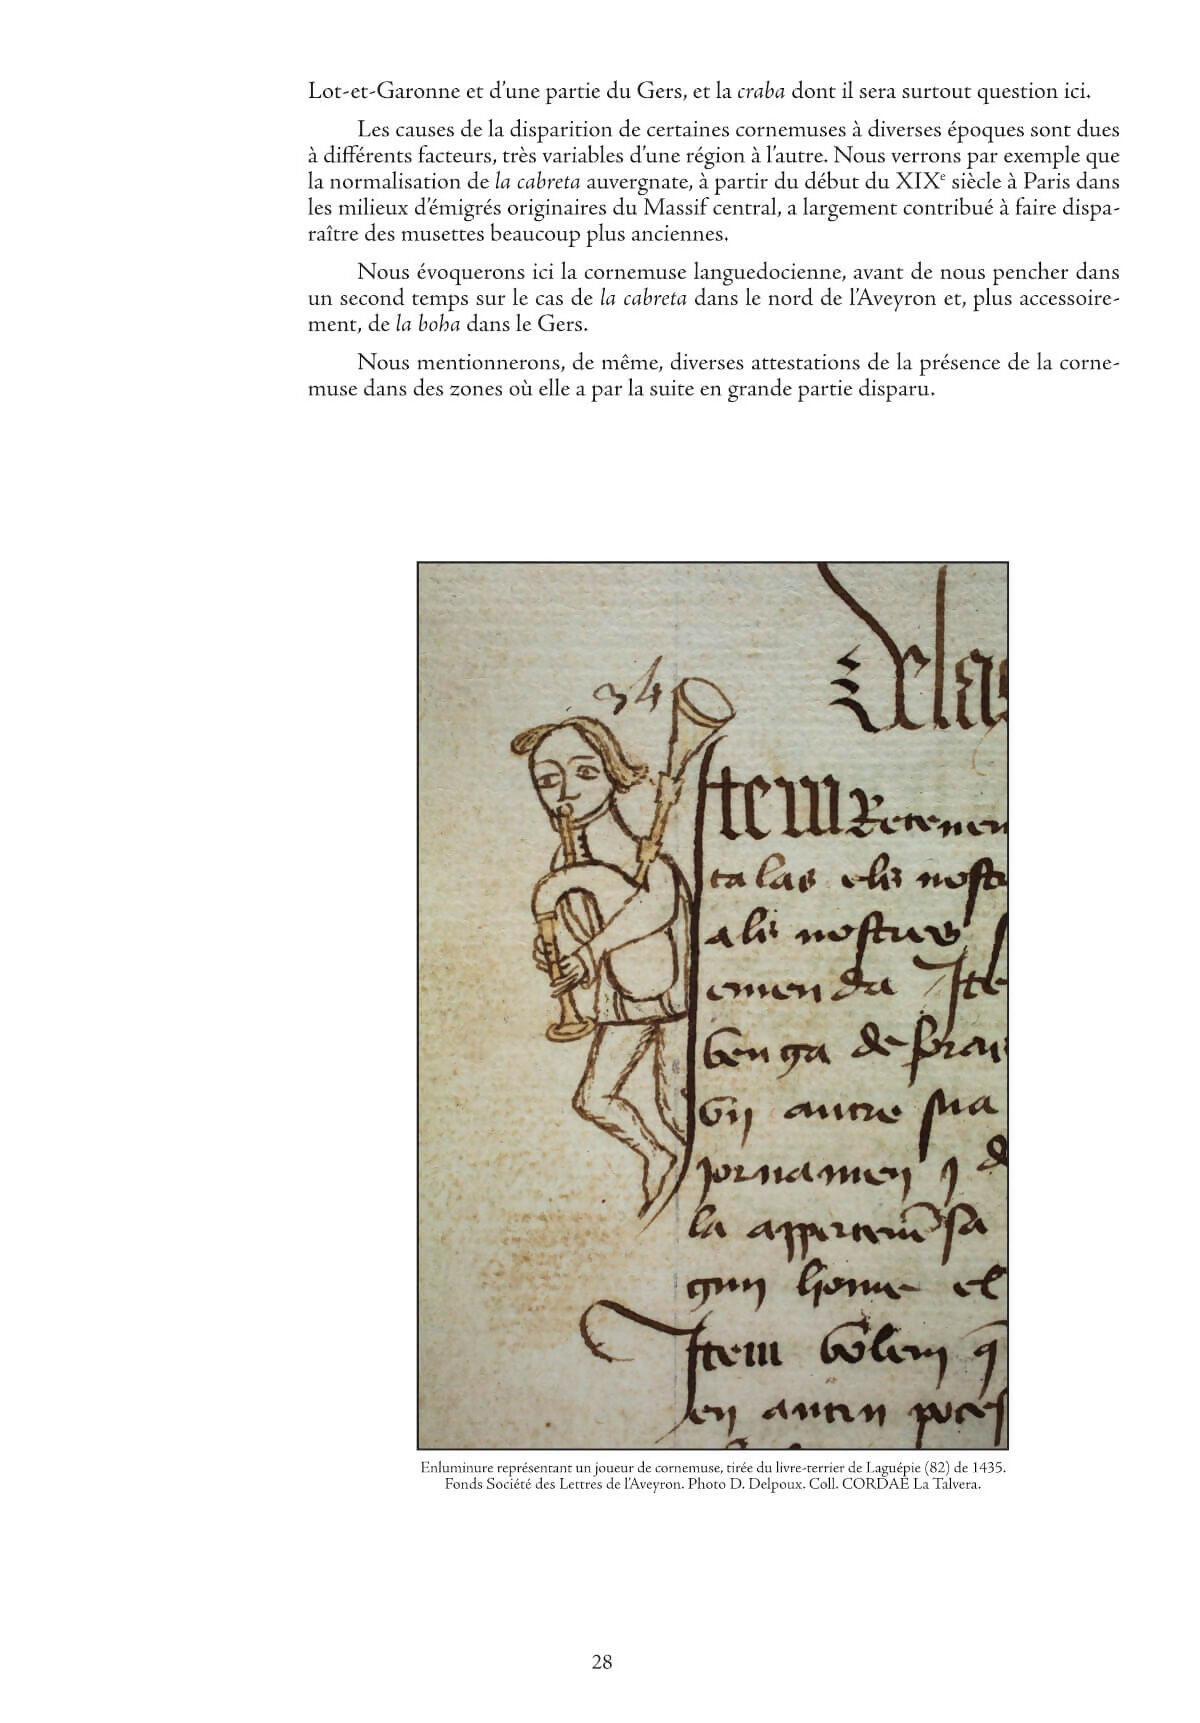 Lot-et-Garonne et d'une partie du Gers, et la craba dont il sera surtout question ici.
Les causes de la disparition de certaines cornemuses à diverses époques sont dues
à différents facteurs, très variables d'une région à l'autre. Nous verrons par exemple que
la normalisation de la cabreta auvergnate, à partir du début du XIXe siècle à Paris dans
les milieux d'émigrés originaires du Massif central, a largement contribué à faire dispa-
raître des musettes beaucoup plus anciennes.
Nous évoquerons ici la cornemuse languedocienne, avant de nous pencher dans
un second temps sur le cas de la cabreta dans le nord de l'Aveyron et, plus accessoire-
ment, de la boha dans le Gers.
Nous mentionnerons, de même, diverses attestations de la présence de la corne-
muse dans des zones où elle a par la suite en grande partie disparu.
34
Item Retenen
talas els nostr
als nostres
emenda Ite
venga de foras
autre sua
jornamen
la
home el
Item volem q
en
Enluminure représentant un joueur de cornemuse, tirée du livre-terrier de Laguépie (82) de 1435.
Fonds Société des Lettres de l'Aveyron. Photo D. Delpoux. Coll. CORDAE La Talvera.
28